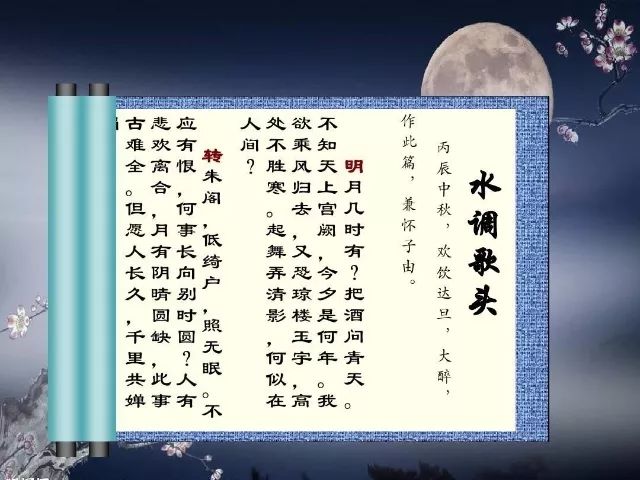 水调歌头
丙辰中秋，欢饮达旦，大醉，
作此篇，兼怀子由。
明月几时有？把酒问青天。
不知天上宫阙，今夕是何年。我
欲乘风归去，又恐琼楼玉宇，高
处不胜寒。起舞弄清影，何似在
人间？
转朱阁，低绮户，照无眠。不
应有恨，何事长向别时圆？人有
悲欢离合，月有阴晴圆缺，此事
古难全。但愿人长久，千里共婵